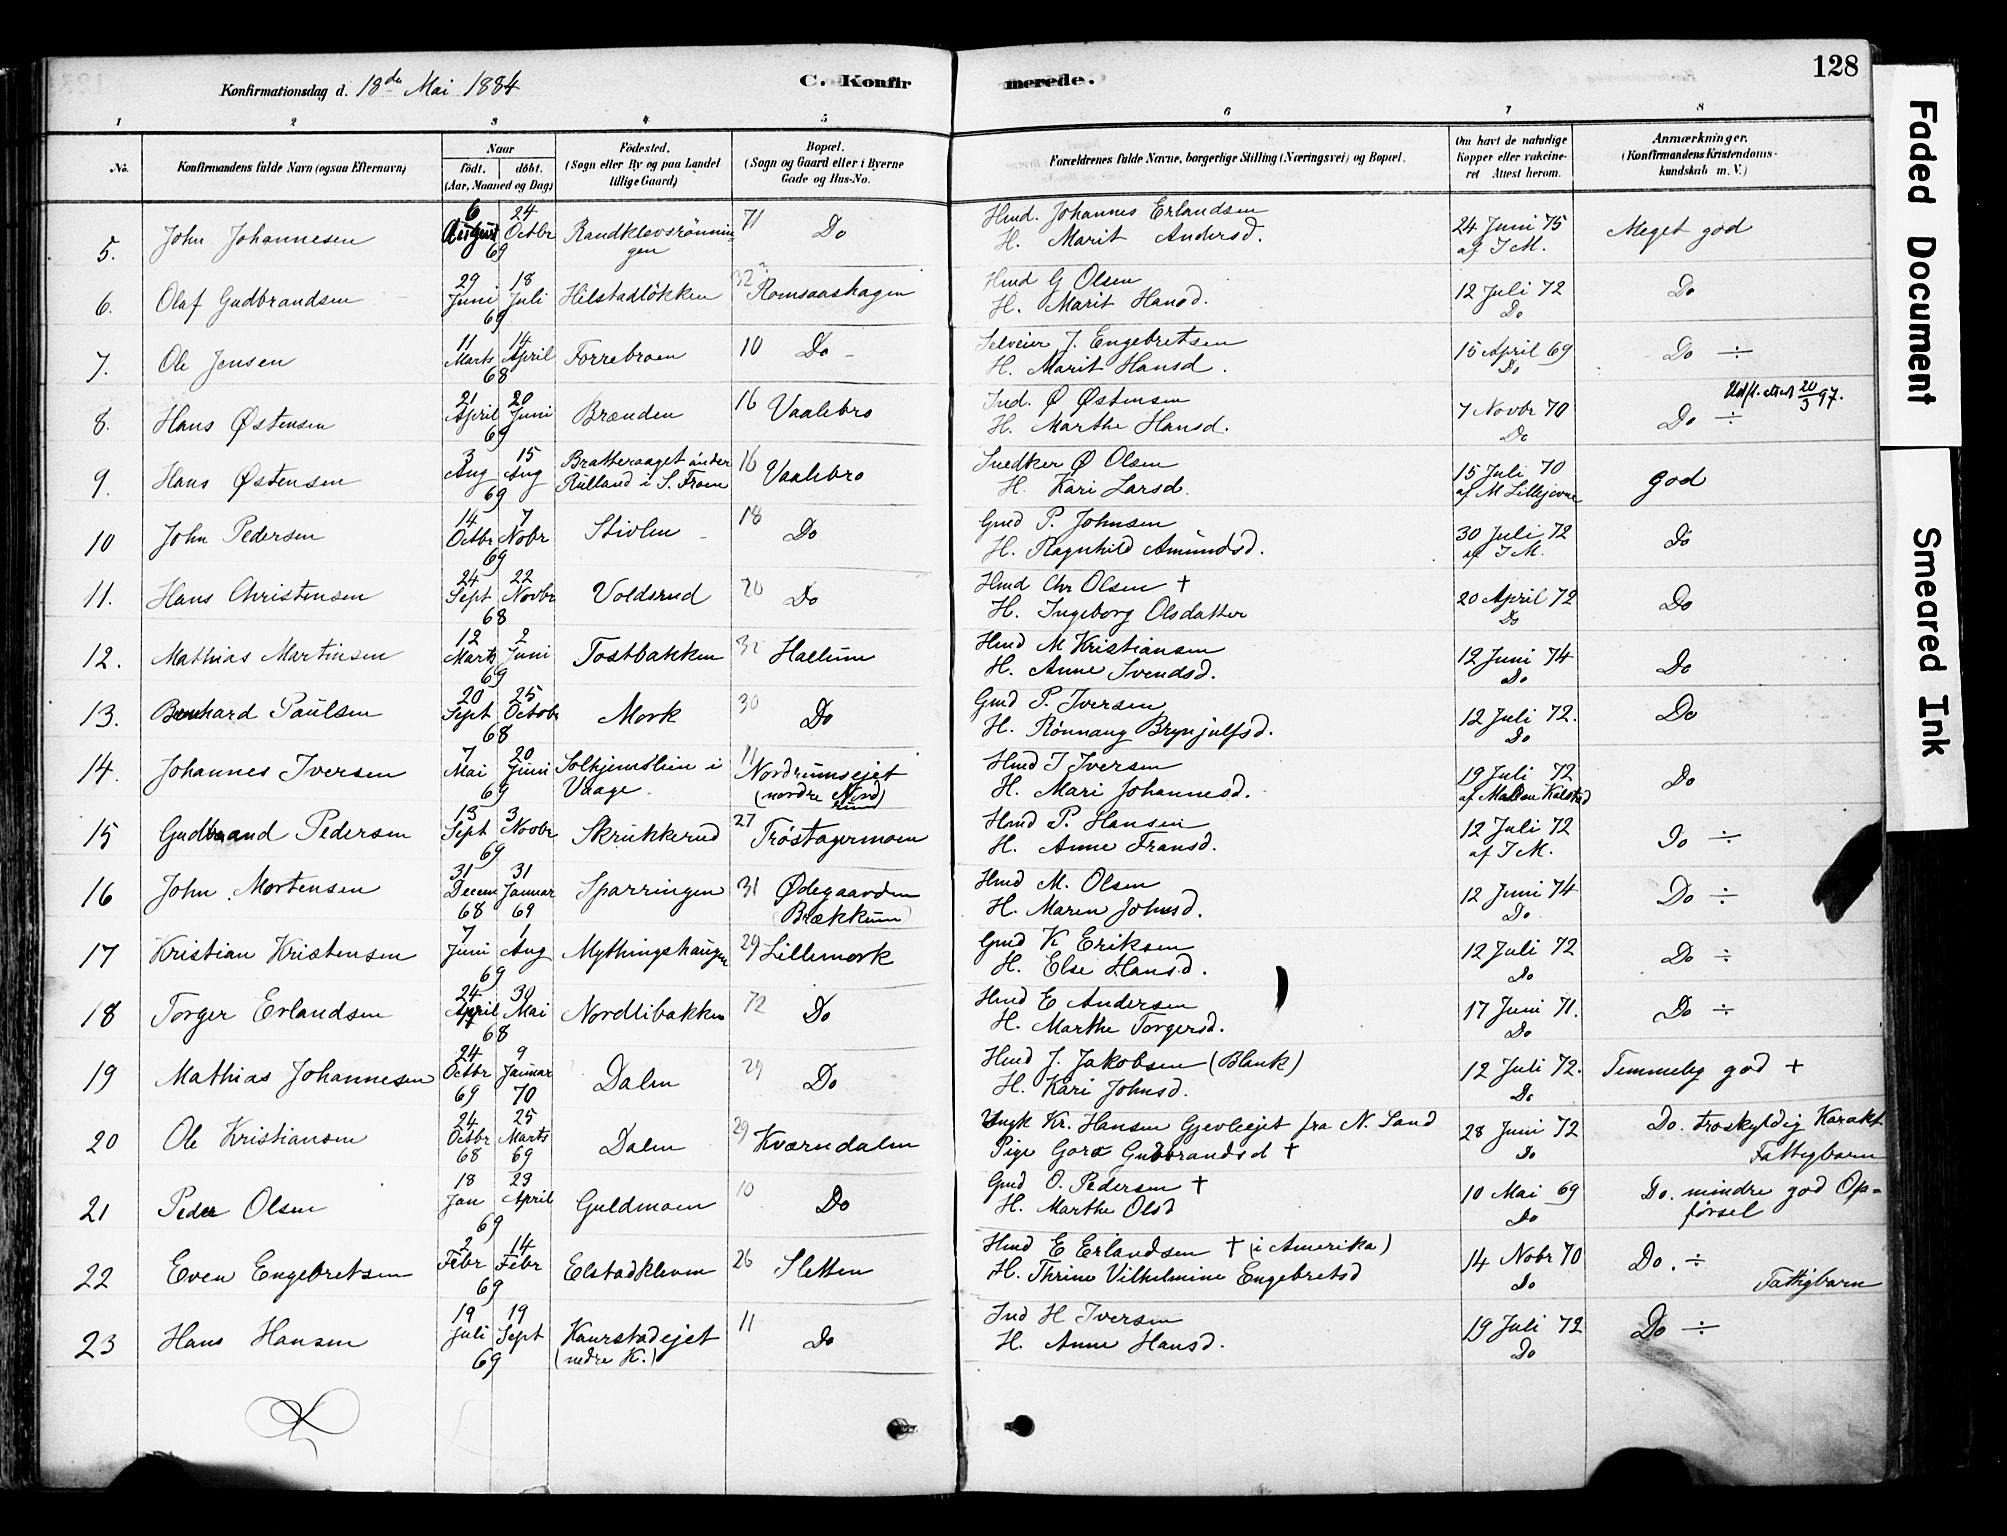 128
Konfirmationsdag d. 18de Mai 1884
C. Konfirmerede.
1 2 3 4 5 6 7 8
No.
Konfirmandens fulde Navn (ogsaa Efternavn)
Naar
født. døbt.
(Aar, Maaned og Dag)
Fødested.
(Sogn eller By og paa Landet
tillige Gaard)
Bopæl.
(Sogn og Gaard eller i Byerne
Gade og Hus-No.
Forældrenes fulde Navne, borgerlige Stilling (Næringsvei) og Bopæl.
Om havt de naturlige
Kopper eller vakcine-
ret Attest herom.
Anmærkninger.
(Konfirmandens Kristendoms-
kundskab m. V.)
5. John Johannesen 6 August 24 Octbr 69 Randklevsrønnin-
gen 71 Do Hmd. Johannes Erlandsen
H. Marit Andersd. 24 Juni 75
af J M. Meget god
6. Olaf Gudbrandsen 29 Juni 18 Juli 69 Hilstadløkken 32 Romsaashagen Hmd G Olsen
H. Marit Hansd. 12 Juli 72
Do Do
7. Ole Jensen 11 Marts 14 April 68 Forrebroen 10 Do Selveier J. Engebretsen
H. Marit Hansd. 15 April 69
Do Do ÷
8. Hans Østensen 21 April 20 Juni 69 Brænden 16 Vaalebro Ind. Ø Østensen
H. Marthe Hansd. 7 Novbr 70
Do Do ÷ Udfl. attest 20/3 97.
9. Hans Østensen 3 Aug 15 Aug 69 Bratteraaget under
Rulland i S. Fron 16 Vaalebro Snedker Ø Olsen
H. Kari Larsd. 15 Juli 70
af M Lillejovne god
10 John Pedersen 14 Octbr 7 Nobr 69 Stivlen 18 Do Gmd P. Johnsen
H. Ragnhild Amundsd. 30 Juli 72
af J M. Do
11. Hans Christensen 24 Sept 22 Novbr 68 Voldsrud 20 Do Hmd Chr Olsen †
H. Ingeborg Olsdatter 20 April 72
Do Do
12. Mathias Martinsen 12 Marts 2 Juni 69 Tostbakken 32 Hallum Hmd M Kristiansen
H. Anne Svendsd. 12 Juni 74
Do Do
13. Bernhard Paulsen 20 Sept 25 Octobr 68 Mork 30 Do Gmd P. Iversen
H. Rønnaug Brynjulfsd. 12 Juli 72.
Do Do
14. Johannes Iversen 7 Mai 20 Juni 69 Solhjemslien i
Vaage. 11 Nordrumsejet
(nordre Nord
rum) Hmd I Iversen
H. Mari Johannesd. 19 Juli 72
af Kalstad Do
15 Gudbrand Pedersen 13 Sept 3 Novbr 69 Skrukkerud 27 Trøstagermoen Hmd P. Hansen
H. Anne Fransd. 12 Juli 72
af J M. Do ÷
16 John Mortensen 31 Decem 68 31 Januar 69 Sparringen 31 Ødegaarden
(Brækkum) Hmd M. Olsen
H. Maren Johnsd. 12 Juni 74
Do. Do ÷
17 Kristian Kristensen 7 Juni 1 Aug 69 Mythingshaugen 29 Lillemork Gmd K Eriksen
H. Else Hansd. 12 Juli 72
Do Do ÷
18 Torger Erlandsen 24 April 30 Mai 68 Nordlibakken 72 Do Hmd E Andersen
H. Marthe Torgersd. 17 Juni 71.
Do Do ÷
19 Mathias Johannesen 24 Octbr 69 9 Januar 70 Dalen 29 Do Hmd J. Jakobsen (Blank)
H. Kari Johnsd. 12 Juli 72.
Do Temmelig god +
20 Ole Kristiansen 24 Octbr 68 25 Marts 69 Dalen 29 Kværndalen Ungk Kr. Hansen Gjevliejet fra N. Land
Pige Goro Gudbrandsd † 28 Juni 72
Do Do. troskyldig Karakt
Fattigbarn
21 Peder Olsen 18 Jan 23 April 69 Guldmoen 10 Do Gmd O. Pedersen †
H. Marthe Olsd 10 Mai 69
Do Do. mindre god Op-
førsel
22 Even Engebretsen 2 Febr 14 Febr 69 Elstadkleven 26 Sletten Hmd E Erlandsen † (i Amerika)
H. Thrine Vilhelmine Engebretsd 14 Nobr 70
Do Do. ÷
Fattigbarn
23 Hans Hansen 19 Juli 19 Sept 69 Kaurstadejet
(nedre K.) 11 Do Ind H Iversen
H. Anne Hansd. 19 Juli 72
Do Do ÷
Faded Document
Smeared Ink